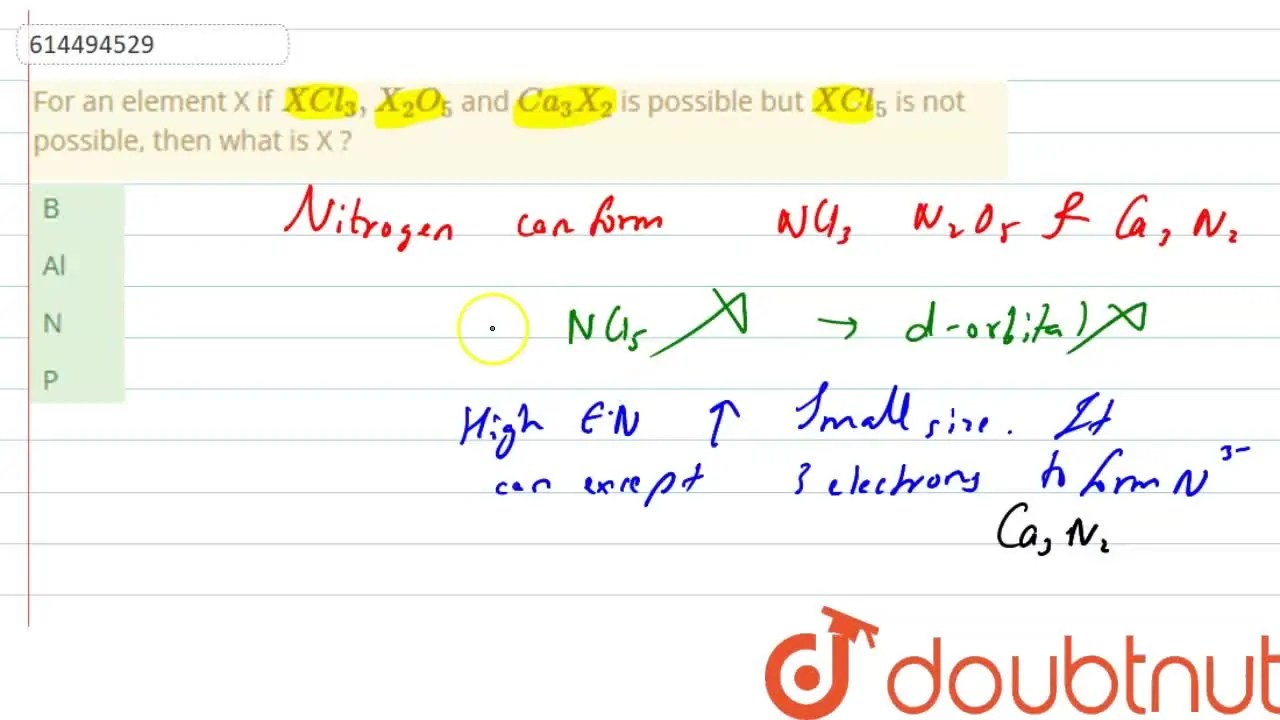 614494529
For an element X if XCl₃, X₂O₅ and Ca₃X₂ is possible but XCl₅ is not
possible, then what is X ?
B
Al
N
P
Nitrogen can form NCl₃ N₂O₅ & Ca₃N₂
NCl₅ X → d-orbital X
High E.N ↑ Small size. It
can except 3 electrons to form N³⁻
Ca₃N₂
doubtnut